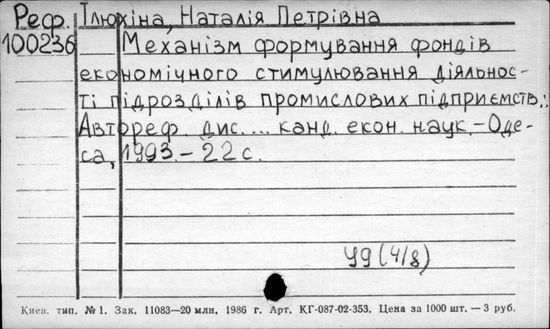 Реф. Ілюхіна, Наталія Петрівна
100236 Механізм формування фондів
економічного стимулювання діяльнос-
ті підрозділів промислових підприємств.:
Автореф. дис. ... канд. екон. наук. - Оде-
са, 1993. - 22 с.
У9(4/8)
Киев. тип. № 1. Зак. 11083—20 млн. 1986 г. Арт. КГ-087-02-353. Цена за 1000 шт. — 3 руб.